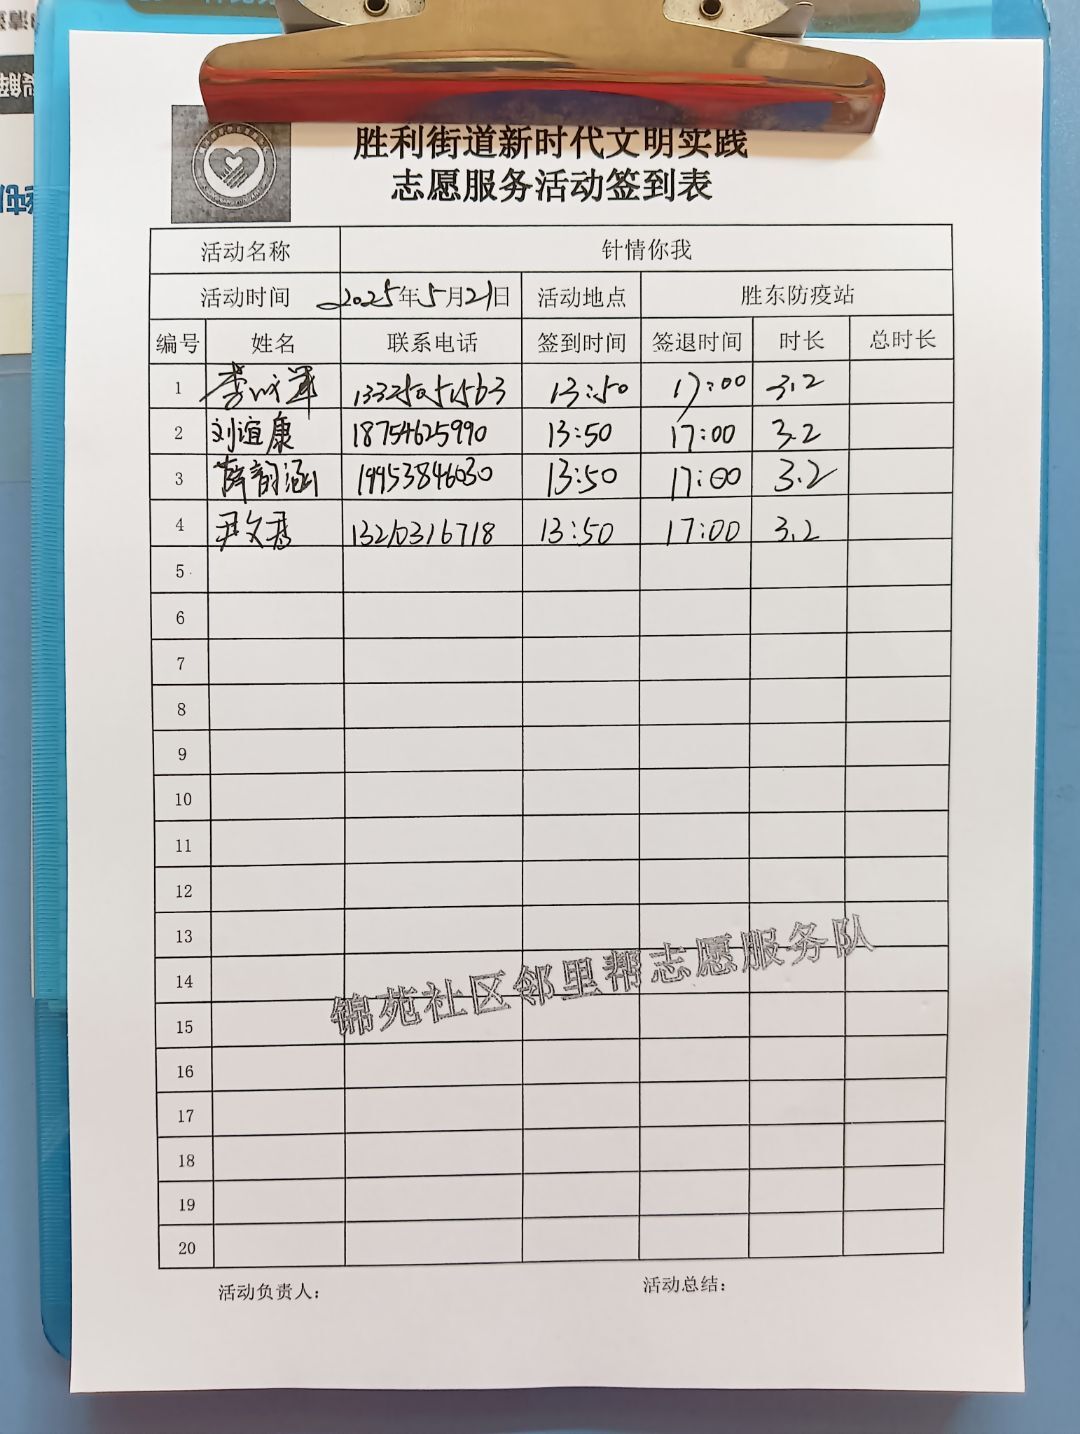 胜利街道新时代文明实践
志愿服务活动签到表
活动名称 针情你我
活动时间 2025年5月21日 活动地点 胜东防疫站
编号 姓名 联系电话 签到时间 签退时间 时长 总时长
1 13:50 17:00 3.2
2 刘谊康 18754625990 13:50 17:00 3.2
3 薛韵涵 19953846030 13:50 17:00 3.2
4 13210316718 13:50 17:00 3.2
5
6
7
8
9
10
11
12
13
14
锦苑社区邻里帮志愿服务队
15
16
17
18
19
20
活动负责人： 活动总结：